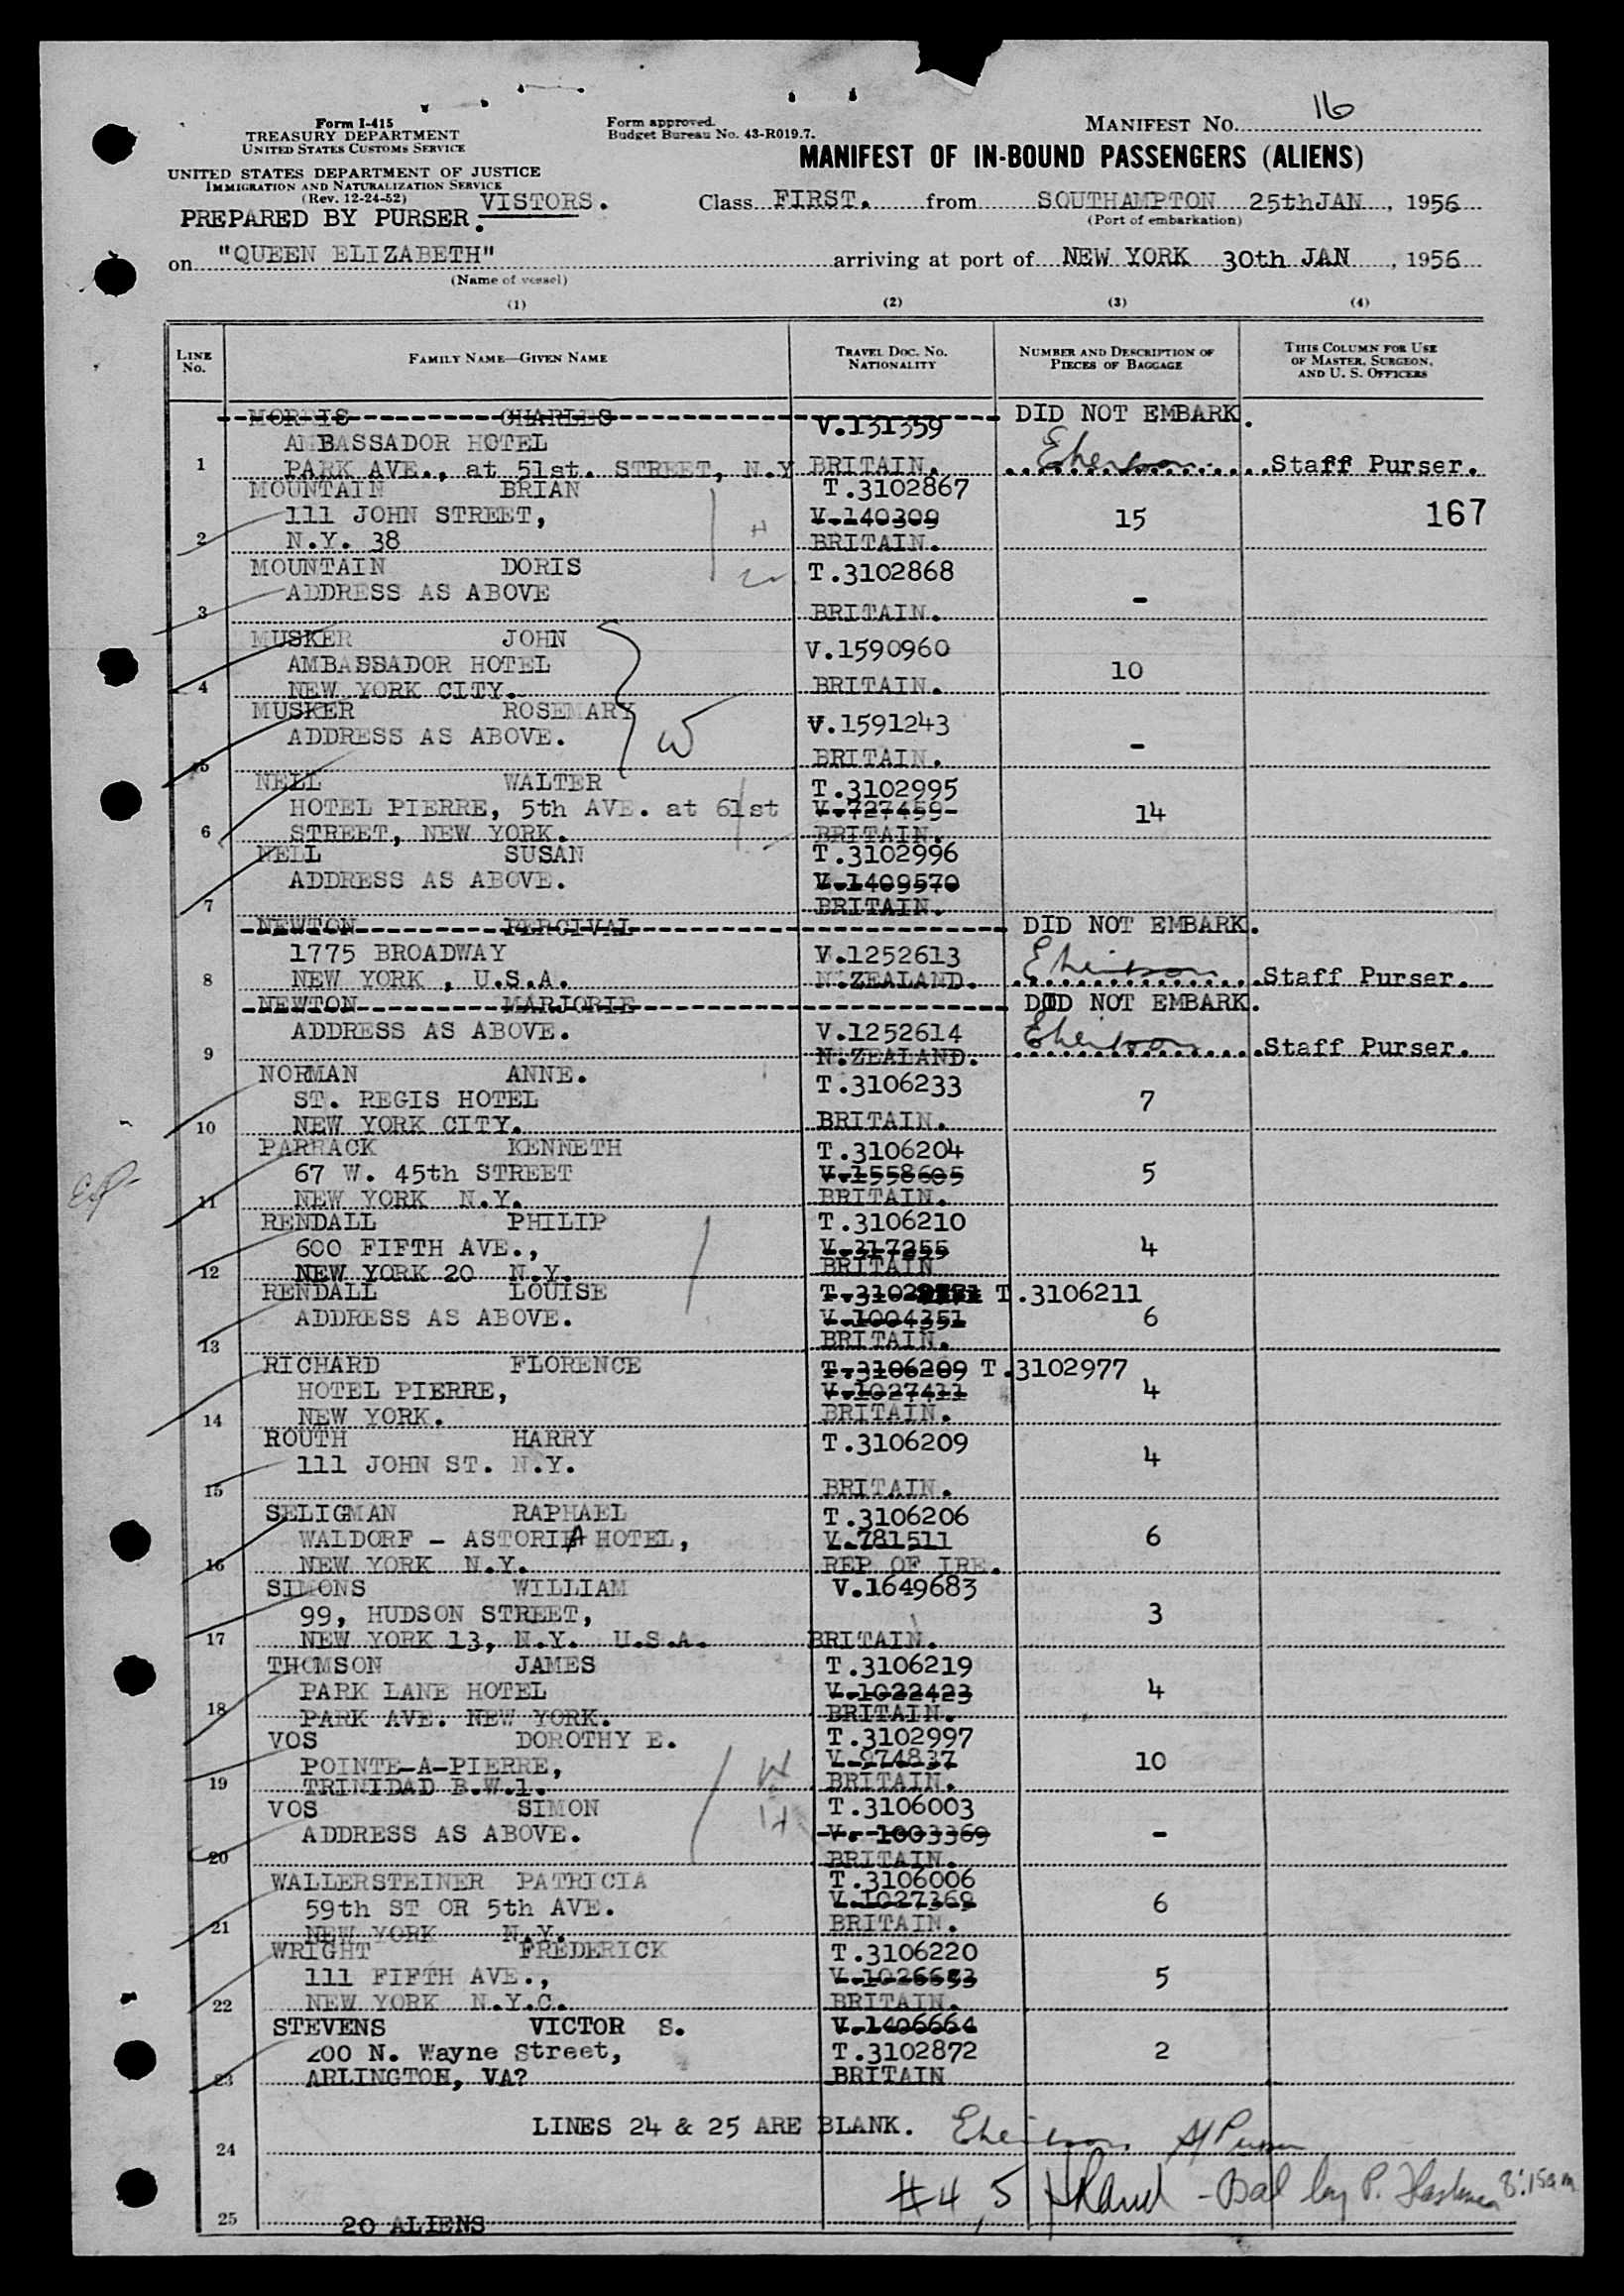 Form I-415
TREASURY DEPARTMENT
UNITED STATES CUSTOMS SERVICE
UNITED STATES DEPARTMENT OF JUSTICE
IMMIGRATION AND NATURALIZATION SERVICE
(Rev. 12-24-52)
PREPARED BY PURSER. VISTORS.
Form approved.
Budget Bureau No. 43-R019.7.
MANIFEST NO. 16
MANIFEST OF IN-BOUND PASSENGERS (ALIENS)
Class FIRST. from SOUTHAMPTON 25thJAN, 1956
(Port of embarkation)
on "QUEEN ELIZABETH" arriving at port of NEW YORK 30th JAN, 1956
(Name of vessel)
(1) (2) (3) (4)
LINE No. FAMILY NAME—GIVEN NAME TRAVEL DOC. NO. NATIONALITY NUMBER AND DESCRIPTION OF PIECES OF BAGGAGE THIS COLUMN FOR USE OF MASTER, SURGEON, AND U. S. OFFICERS
MORRIS CHARLES DID NOT EMBARK.
AMBASSADOR HOTEL V.131359
1 PARK AVE., at 51st. STREET, N.Y BRITAIN. Staff Purser.
MOUNTAIN BRIAN T.3102867
111 JOHN STREET, H V.140309 15 167
2 N.Y. 38 BRITAIN.
MOUNTAIN DORIS T.3102868
ADDRESS AS ABOVE -
3 BRITAIN.
MUSKER JOHN V.1590960
AMBASSADOR HOTEL 10
4 NEW YORK CITY. BRITAIN.
MUSKER ROSEMARY V.1591243
ADDRESS AS ABOVE. W -
5 BRITAIN.
NELL WALTER T.3102995
HOTEL PIERRE, 5th AVE. at 61st V.727459- 14
6 STREET, NEW YORK. BRITAIN.
NELL SUSAN T.3102996
ADDRESS AS ABOVE. V.1409570
7 BRITAIN.
NEWTON PERCIVAL DID NOT EMBARK.
1775 BROADWAY V.1252613
8 NEW YORK , U.S.A. N.ZEALAND. Staff Purser.
NEWTON MARJORIE DID NOT EMBARK.
ADDRESS AS ABOVE. V.1252614
9 N.ZEALAND. Staff Purser.
NORMAN ANNE. T.3106233
ST. REGIS HOTEL 7
10 NEW YORK CITY. BRITAIN.
PARRACK KENNETH T.3106204
67 W. 45th STREET V.1558605 5
11 NEW YORK N.Y. BRITAIN.
RENDALL PHILIP T.3106210
600 FIFTH AVE., V.317255 4
12 NEW YORK 20 N.Y. BRITAIN
RENDALL LOUISE T.3106211
ADDRESS AS ABOVE. V.1004351 6
13 BRITAIN.
RICHARD FLORENCE T.3106209 T.3102977
HOTEL PIERRE, V.1027411 4
14 NEW YORK. BRITAIN.
ROUTH HARRY T.3106209
111 JOHN ST. N.Y. 4
15 BRITAIN.
SELIGMAN RAPHAEL T.3106206
WALDORF - ASTORIA HOTEL, V.781511 6
16 NEW YORK N.Y. REP OF IRE.
SIMONS WILLIAM V.1649683
99, HUDSON STREET, 3
17 NEW YORK 13, N.Y. U.S.A. BRITAIN.
THOMSON JAMES T.3106219
PARK LANE HOTEL V.1022423 4
18 PARK AVE. NEW YORK. BRITAIN.
VOS DOROTHY E. T.3102997
POINTE-A-PIERRE, W V.974837 10
19 TRINIDAD B.W.1. BRITAIN.
VOS SIMON T.3106003
ADDRESS AS ABOVE. H V.-1003369 -
20 BRITAIN.
WALLERSTEINER PATRICIA T.3106006
59th ST OR 5th AVE. V.1027369 6
21 NEW YORK N.Y. BRITAIN.
WRIGHT FREDERICK T.3106220
111 FIFTH AVE., V.1026653 5
22 NEW YORK N.Y.C. BRITAIN.
STEVENS VICTOR S. V.1406664
200 N. Wayne Street, T.3102872 2
23 ARLINGTON, VA? BRITAIN
LINES 24 & 25 ARE BLANK. S/Purser
24
#4, 5 - Bal by P. 8:15am
25 20 ALIENS